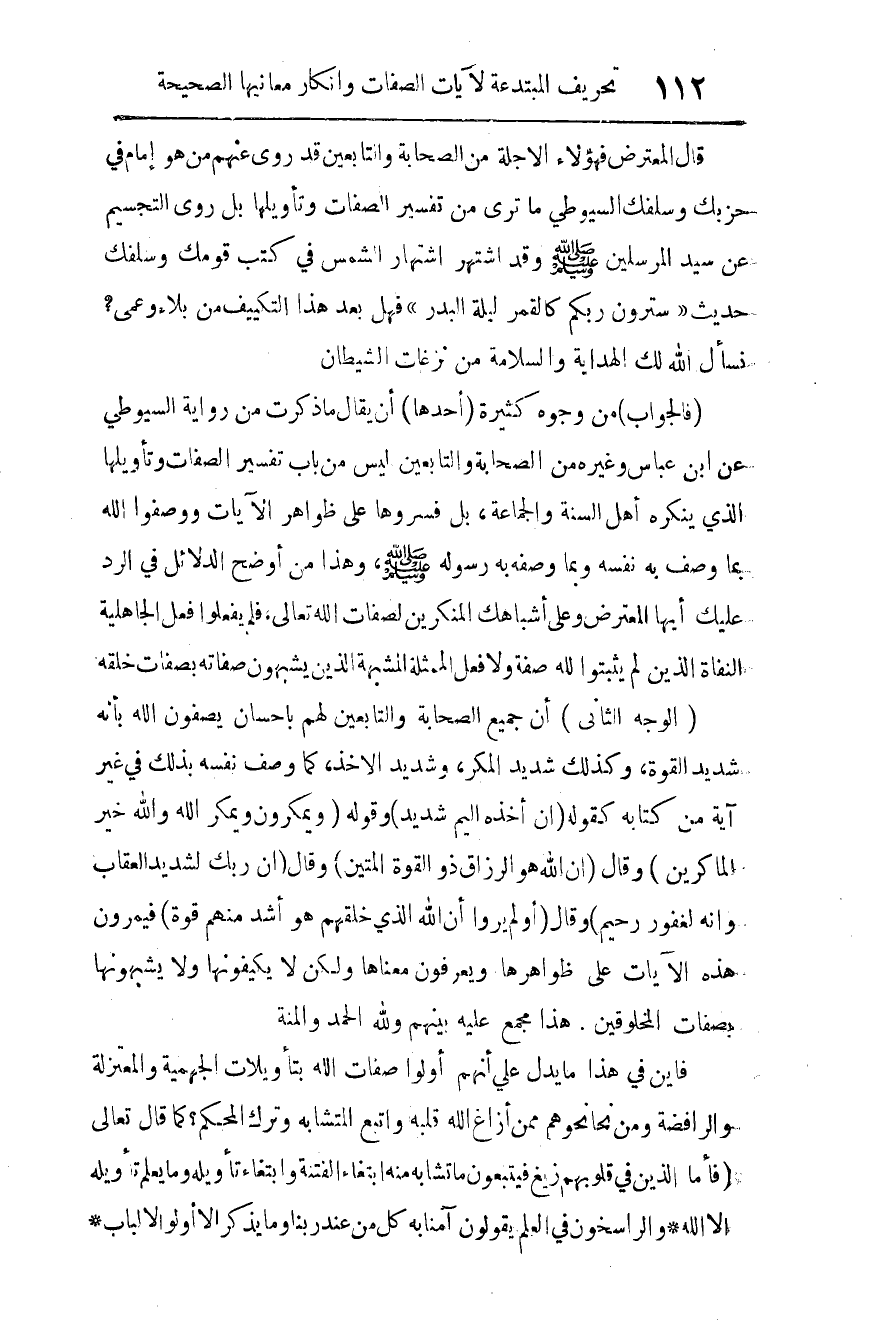 ١١٢ تحريف المبتدعة لآيات الصفات وانكار معانيها الصحيحة
قال المعترض فهؤلاء الاجلة من الصحابة والتابعين قد روى عنهم من هو إمام في
حزبك وسلفك السيوطي ما ترى من تفسير الصفات وتأويلها بل روى التجسيم
عن سيد المرسلين ﷺ وقد اشتهر اشتهار الشمس في كتب قومك وسلفك
حديث « سترون ربكم كالقمر ليلة البدر » فهل بعد هذا التكييف من بلاء وعمى؟
نسأل الله لك الهداية والسلامة من نزغات الشيطان
(فالجواب) من وجوه كثيرة (أحدها) أن يقال ما ذكرت من رواية السيوطي
عن ابن عباس وغيره من الصحابة والتابعين ليس من باب تفسير الصفات وتأويلها
الذي ينكره أهل السنة والجماعة، بل فسروها على ظواهر الآيات ووصفوا الله
بما وصف به نفسه وبما وصفه به رسوله ﷺ، وهذا من أوضح الدلائل في الرد
عليك أيها المعترض وعلى أشباهك المنكرين لصفات الله تعالى، فلم يفعلوا فعل الجاهلية
النفاة الذين لم يثبتوا لله صفة ولا فعل الممثلة المشبهة الذين يشبهون صفاته بصفات خلقه
( الوجه الثانى ) أن جميع الصحابة والتابعين لهم باحسان يصفون الله بأنه
شديد القوة، وكذلك شديد المكر، وشديد الاخذ، كما وصف نفسه بذلك في غير
آية من كتابه كقوله (ان أخذه اليم شديد) وقوله ( ويمكرون ويمكر الله والله خير
الماكرين ) وقال (ان الله هو الرزاق ذو القوة المتين) وقال (ان ربك لشديد العقاب
وانه لغفور رحيم) وقال (أولم يروا أن الله الذي خلقهم هو أشد منهم قوة) فيمرون
هذه الآيات على ظواهرها ويعرفون معناها ولكن لا يكيفونها ولا يشبهونها
بصفات المخلوقين . هذا مجمع عليه بينهم ولله الحمد والمنة
فاين في هذا ما يدل على أنهم أولوا صفات الله بتأويلات الجهمية والمعتزلة
والرافضة ومن نحا نحوهم ممن أزاغ الله قلبه واتبع المتشابه وترك المحكم؟ كما قال تعالى
(فأما الذين في قلوبهم زيغ فيتبعون ما تشابه منه ابتغاء الفتنة وابتغاء تأويله وما يعلم تأويله
الا الله * والراسخون في العلم يقولون آمنا به كل من عند ربنا وما يذكر الا أولو الالباب *